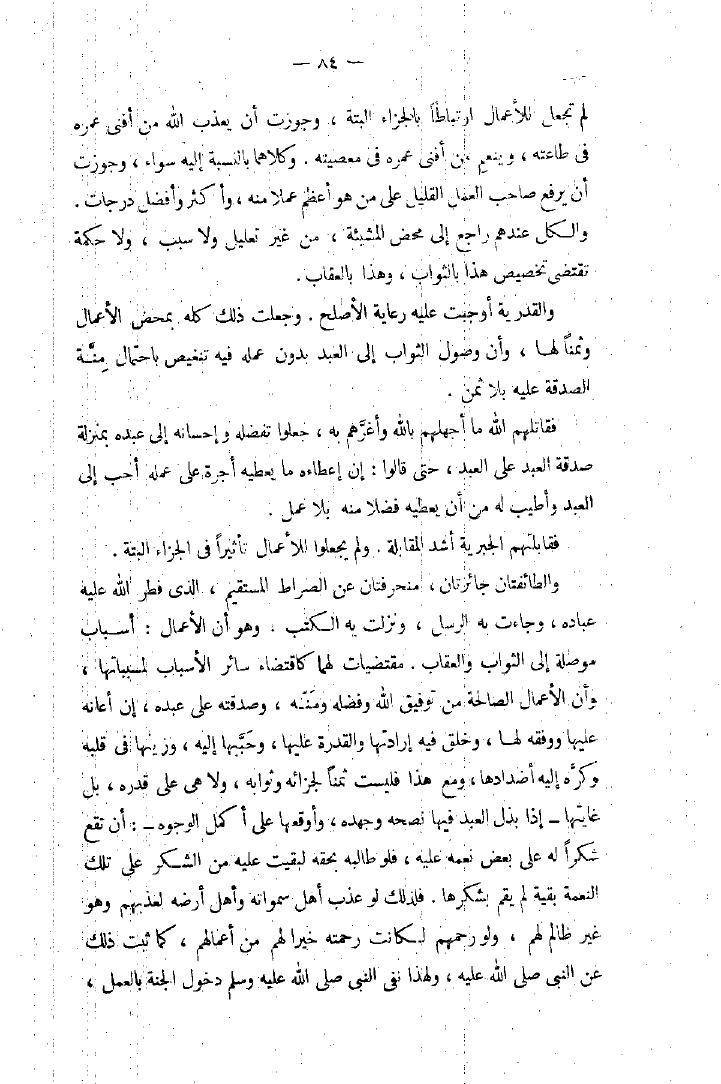 — ٨٤ —
لم تجعل للأعمال ارتباطاً بالجزاء البتة ، وجوزت أن يعذب الله من أفنى عمره
فى طاعته ، وينعم من أفنى عمره فى معصيته . وكلاهما بالنسبة إليه سواء ، وجوزت
أن يرفع صاحب العمل القليل على من هو أعظم عملا منه ، وأكثر وأفضل درجات .
والكل عندهم راجع إلى محض المشيئة ، من غير تعليل ولا سبب ، ولا حكمة
تقتضى تخصيص هذا بالثواب ، وهذا بالعقاب .
والقدرية أوجبت عليه رعاية الأصلح . وجعلت ذلك كله بمحض الأعمال
وثمناً لها ، وأن وصول الثواب إلى العبد بدون عمله فيه تنغيص باحتمال مِنَّة
الصدقة عليه بلا ثمن .
فقاتلهم الله ما أجهلهم بالله وأغرَّهم به ، جعلوا تفضله وإحسانه إلى عبده بمنزلة
صدقة العبد على العبد ، حتى قالوا : إن إعطاءه ما يعطيه أجرة على عمله أحب إلى
العبد وأطيب له من أن يعطيه فضلا منه بلا عمل .
فقابلتهم الجبرية أشد المقابلة . ولم يجعلوا للأعمال تأثيراً فى الجزاء البتة .
والطائفتان جائرتان ، منحرفتان عن الصراط المستقيم ، الذى فطر الله عليه
عباده ، وجاءت به الرسل ، ونزلت به الكتب . وهو أن الأعمال : أسباب
موصلة إلى الثواب والعقاب . مقتضيات لهما كاقتضاء سائر الأسباب لمسبباتها ،
وأن الأعمال الصالحة من توفيق الله وفضله ومَنّه ، وصدقته على عبده ، إن أعانه
عليها ووفقه لها ، وخلق فيه إرادتها والقدرة عليها ، وحَبَّبها إليه ، وزينها فى قلبه
وكرَّه إليه أضدادها ، ومع هذا فليست ثمناً لجزائه وثوابه ، ولا هى على قدره ، بل
غايتها – إذا بذل العبد فيها نصحه وجهده ، وأوقعها على أكمل الوجوه – : أن تقع
شكراً له على بعض نعمه عليه ، فلو طالبه بحقه لبقيت عليه من الشكر على تلك
النعمة بقية لم يقم بشكرها . فلذلك لو عذب أهل سمواته وأهل أرضه لعذبهم وهو
غير ظالم لهم ، ولو رحمهم لكانت رحمته خيرا لهم من أعمالهم ، كما ثبت ذلك
عن النبى صلى الله عليه ، ولهذا نفى النبى صلى الله عليه وسلم دخول الجنة بالعمل ،